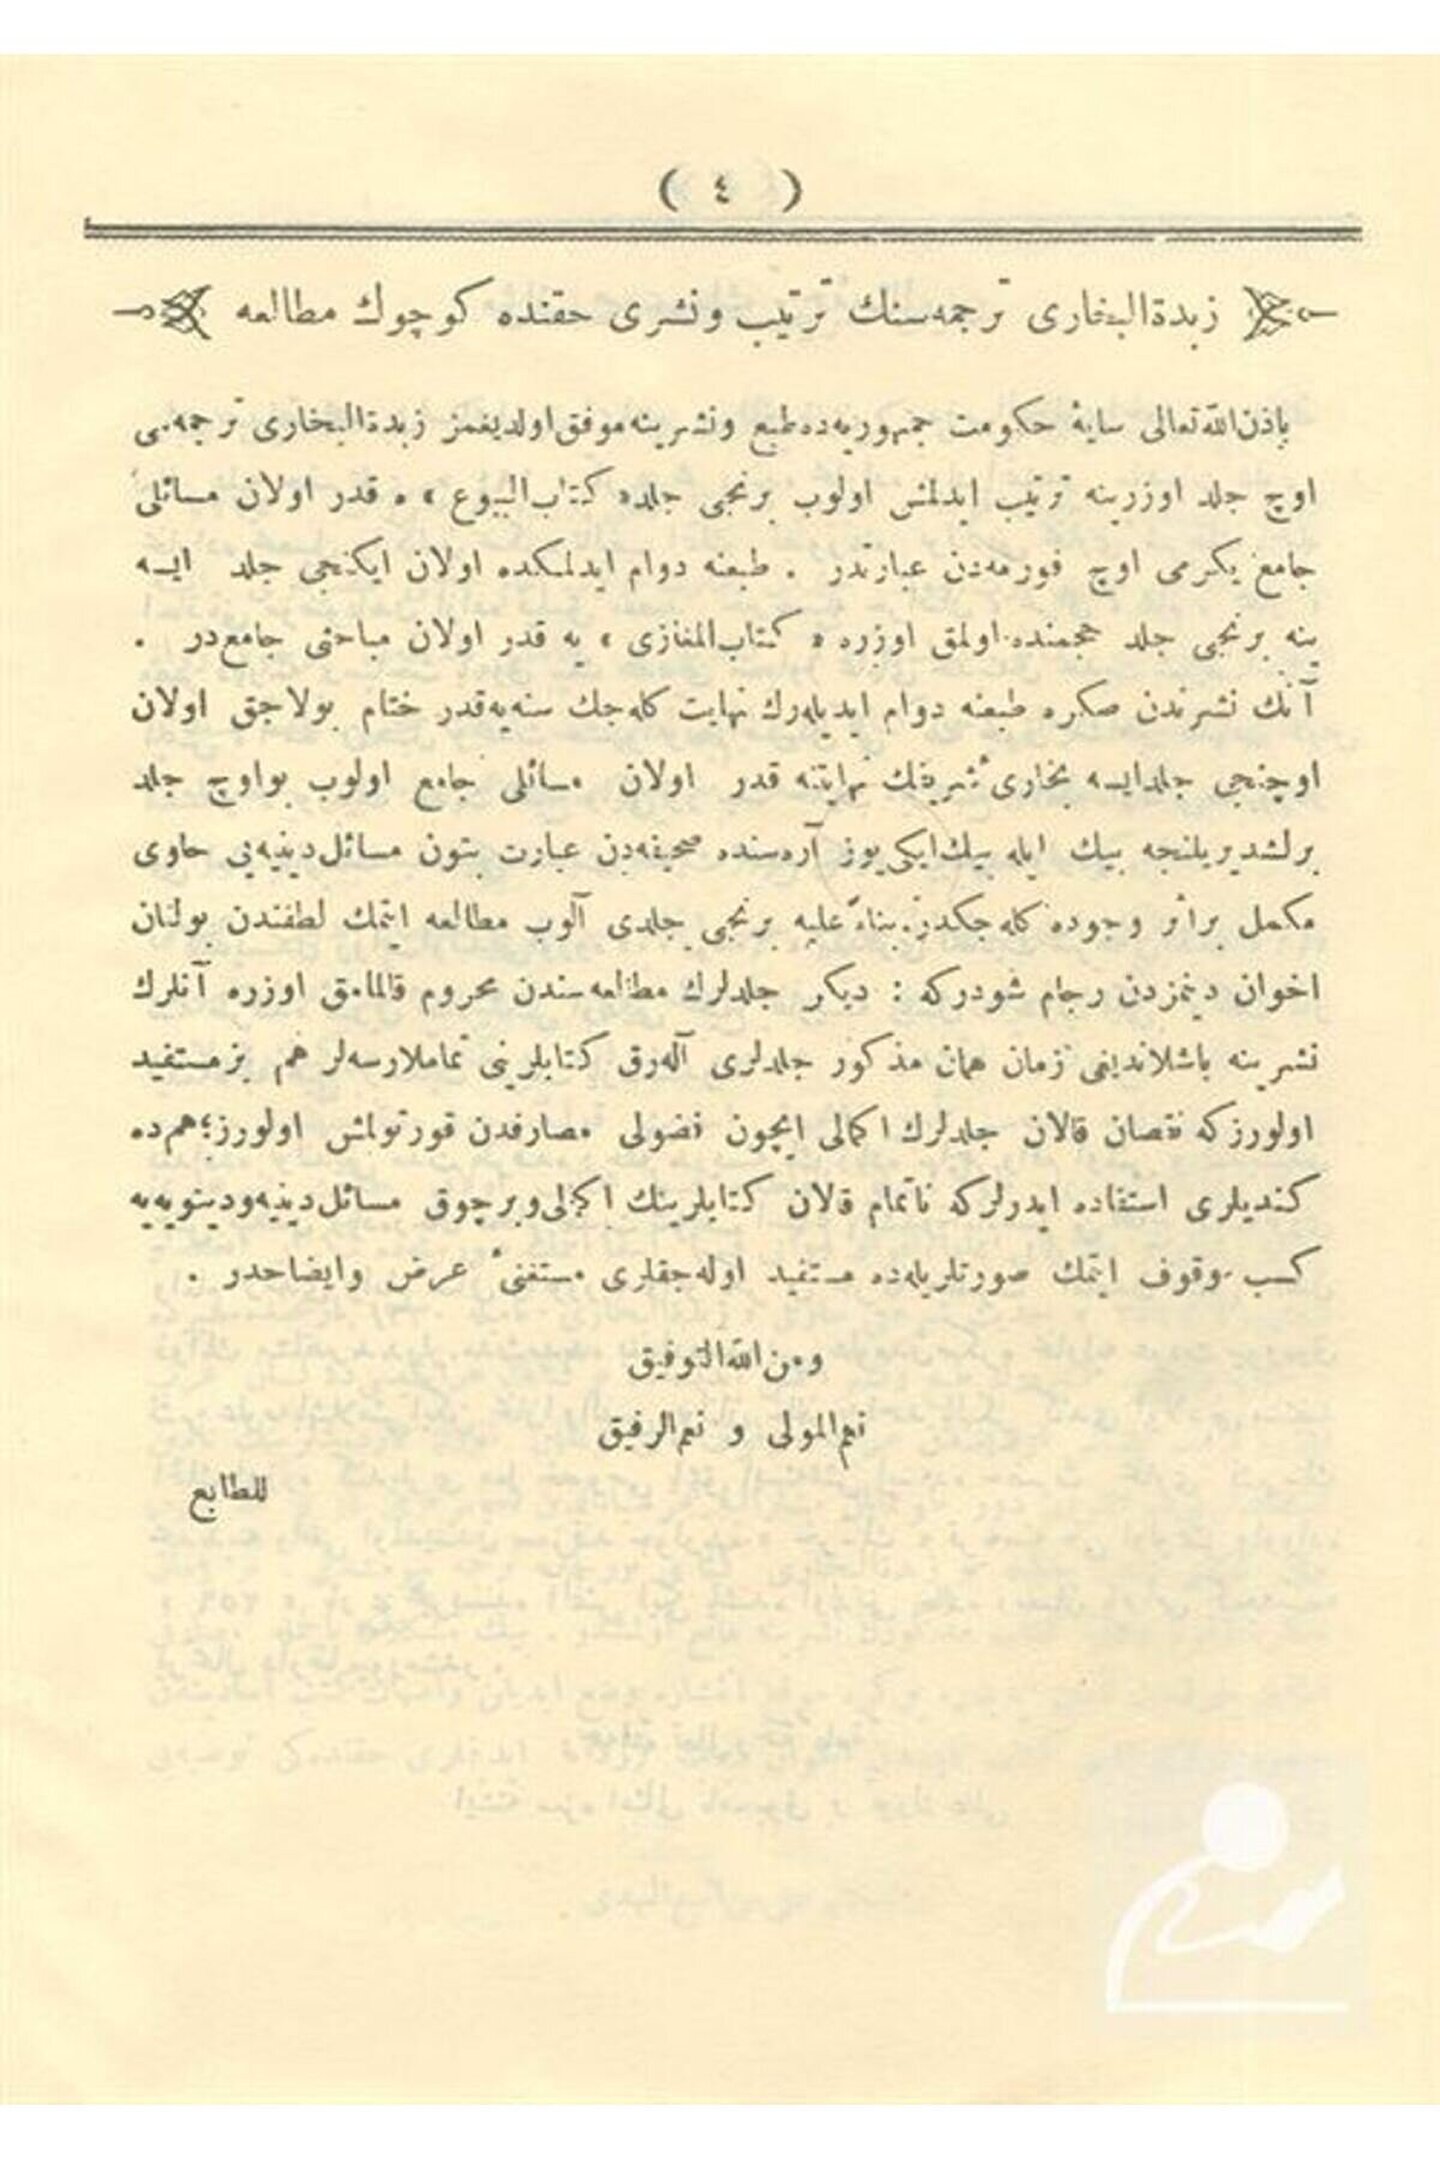 ( ٤ )
زبدةالبخاری ترجمه‌سنك ترتیب ونشری حقنده كوچوك مطالعه
باذن‌الله‌تعالی سایهٔ حكومت جمهوریه‌ده‌طبع ونشرینه‌موفق‌اولدیغمز زبدةالبخاری ترجمه‌سی
اوچ جلد اوزرینه ترتیب ایدلمش اولوب برنجی جلد« كتاب‌البیوع » ه قدر اولان مسائلی
جامع یكرمی اوچ فورمه‌دن عبارتدر . طبعنه دوام ایدلمكده اولان ایكنجی جلد ایسه
ینه برنجی جلد حجمنده اولمق اوزره « كتاب‌المغازی » یه قدر اولان مباحثی جامع‌در .
آنك نشرندن صكره طبعنه دوام ایدیله‌رك نهایت كله‌جك سنه‌یه‌قدر ختام بولاجق اولان
اوچنجی جلدایسه بخاریٔ شریفك نهایتنه قدر اولان مسائلی جامع اولوب بواوچ جلد
برلشدیریلنجه بیك ایله بیك‌ایكی‌یوز آره‌سنده صحیفه‌دن عبارت بتون مسائل‌دینیه‌یی حاوی
مكمل براثر وجوده كله‌جكدر. بناءً علیه برنجی جلدی آلوب مطالعه ایتمك لطفندن بولنان
اخوان دینمزدن رجام شودركه : دیكر جلدلرك مطالعه‌سندن محروم قالمامق اوزره آنلرك
نشرینه باشلاندیغی زمان همان مذكور جلدلری آله‌رق كتابلرینی تماملارسه‌لر هم بزمستفید
اولورزكه نقصان قالان جلدلرك اكمالی ایچون فضولی مصارفدن قورتولمش اولورز؛هم‌ده
كندیلری استفاده ایدرلركه ناتمام قالان كتابلرینك اكمالی‌وبرچوق مسائل‌دینیه‌ودنیویه‌یه
كسب وقوف ایتمك صورتلریله‌ده مستفید اوله‌جقلری مستغنیٔ عرض وایضاحدر .
ومن‌الله‌التوفیق
نعم‌المولی و نعم‌الرفیق
للطابع